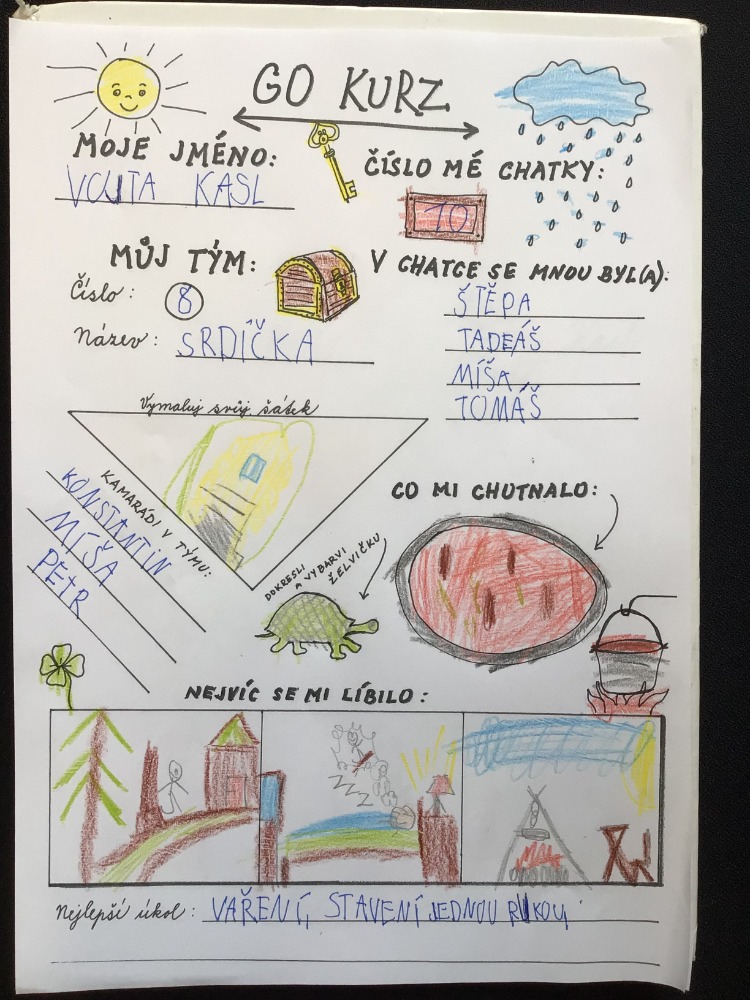 GO KURZ
MOJE JMÉNO:
VOJTA KASL
ČÍSLO MÉ CHATKY:
10
MŮJ TÝM:
Číslo:
8
Název:
SRDÍČKA
V CHATCE SE MNOU BYL(A):
ŠTĚPA
TADEÁŠ
MÍŠA
TOMÁŠ
Vymaluj svůj šátek
KAMARÁDI V TÝMU:
KONSTANTIN
MÍŠA
PETR
DOKRESLI
A VYBARVI
ŽELVIČKU
CO MI CHUTNALO:
NEJVÍC SE MI LÍBILO:
Nejlepší úkol:
VAŘENÍ, STAVENÍ JEDNOU RUKOU